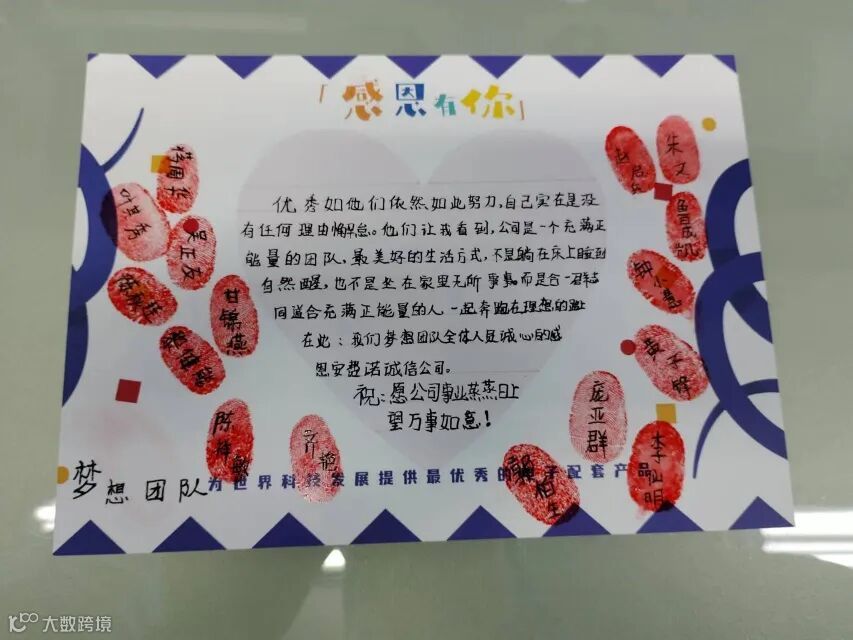 「感恩有你」
优秀如他们依然如此努力,自己实在是没
有任何理由懈怠。他们让我看到,公司是一个充满正
能量的团队,最美好的生活方式,不是躺在床上睡到
自然醒,也不是坐在家里无所事事,而是合一群志
同道合充满正能量的人一起奔跑在理想的
在此:我们梦想团队全体人员诚心的感
恩安费诺诚信公司。
祝:愿公司事业蒸蒸日上
望万事如意!
朱文
吴正友
甘锦燕
钟小惠
庞亚群
齐艳
李仙明
梦想团队
为世界科技发展提供最优秀的 子配套产品
大数跨境